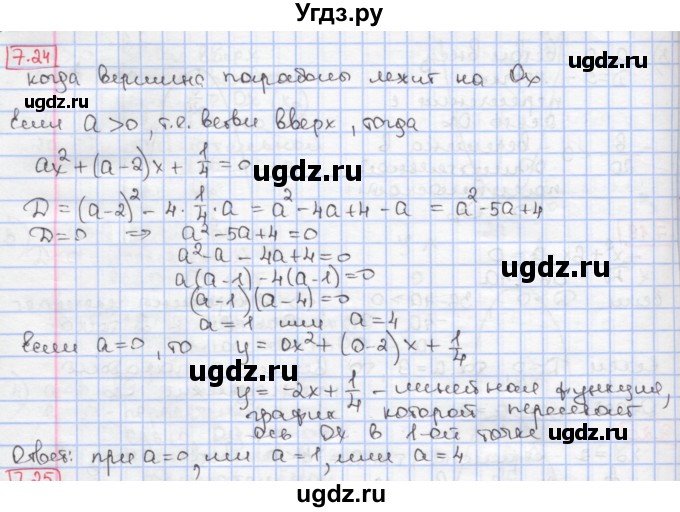 Угдз.ру
7.24
когда вершина параболы лежит на Ox
Если a > 0, т.е. ветви вверх, тогда
ax² + (a-2)x + 1/4 = 0
D = (a-2)² - 4 · 1/4 · a = a² - 4a + 4 - a = a² - 5a + 4
D = 0 ⇒ a² - 5a + 4 = 0
a² - a - 4a + 4 = 0
a(a-1) - 4(a-1) = 0
(a-1)(a-4) = 0
a = 1 или a = 4
Если a = 0, то y = 0x² + (0-2)x + 1/4
y = -2x + 1/4 - линейная функция,
график которой пересекает
ось Ox в 1-ой точке
Ответ: при a = 0, или a = 1, или a = 4
7.25
ugdz.ru
ugdz.ru
ugdz.ru
ugdz.ru
ugdz.ru
ugdz.ru
ugdz.ru
ugdz.ru
ugdz.ru
ugdz.ru